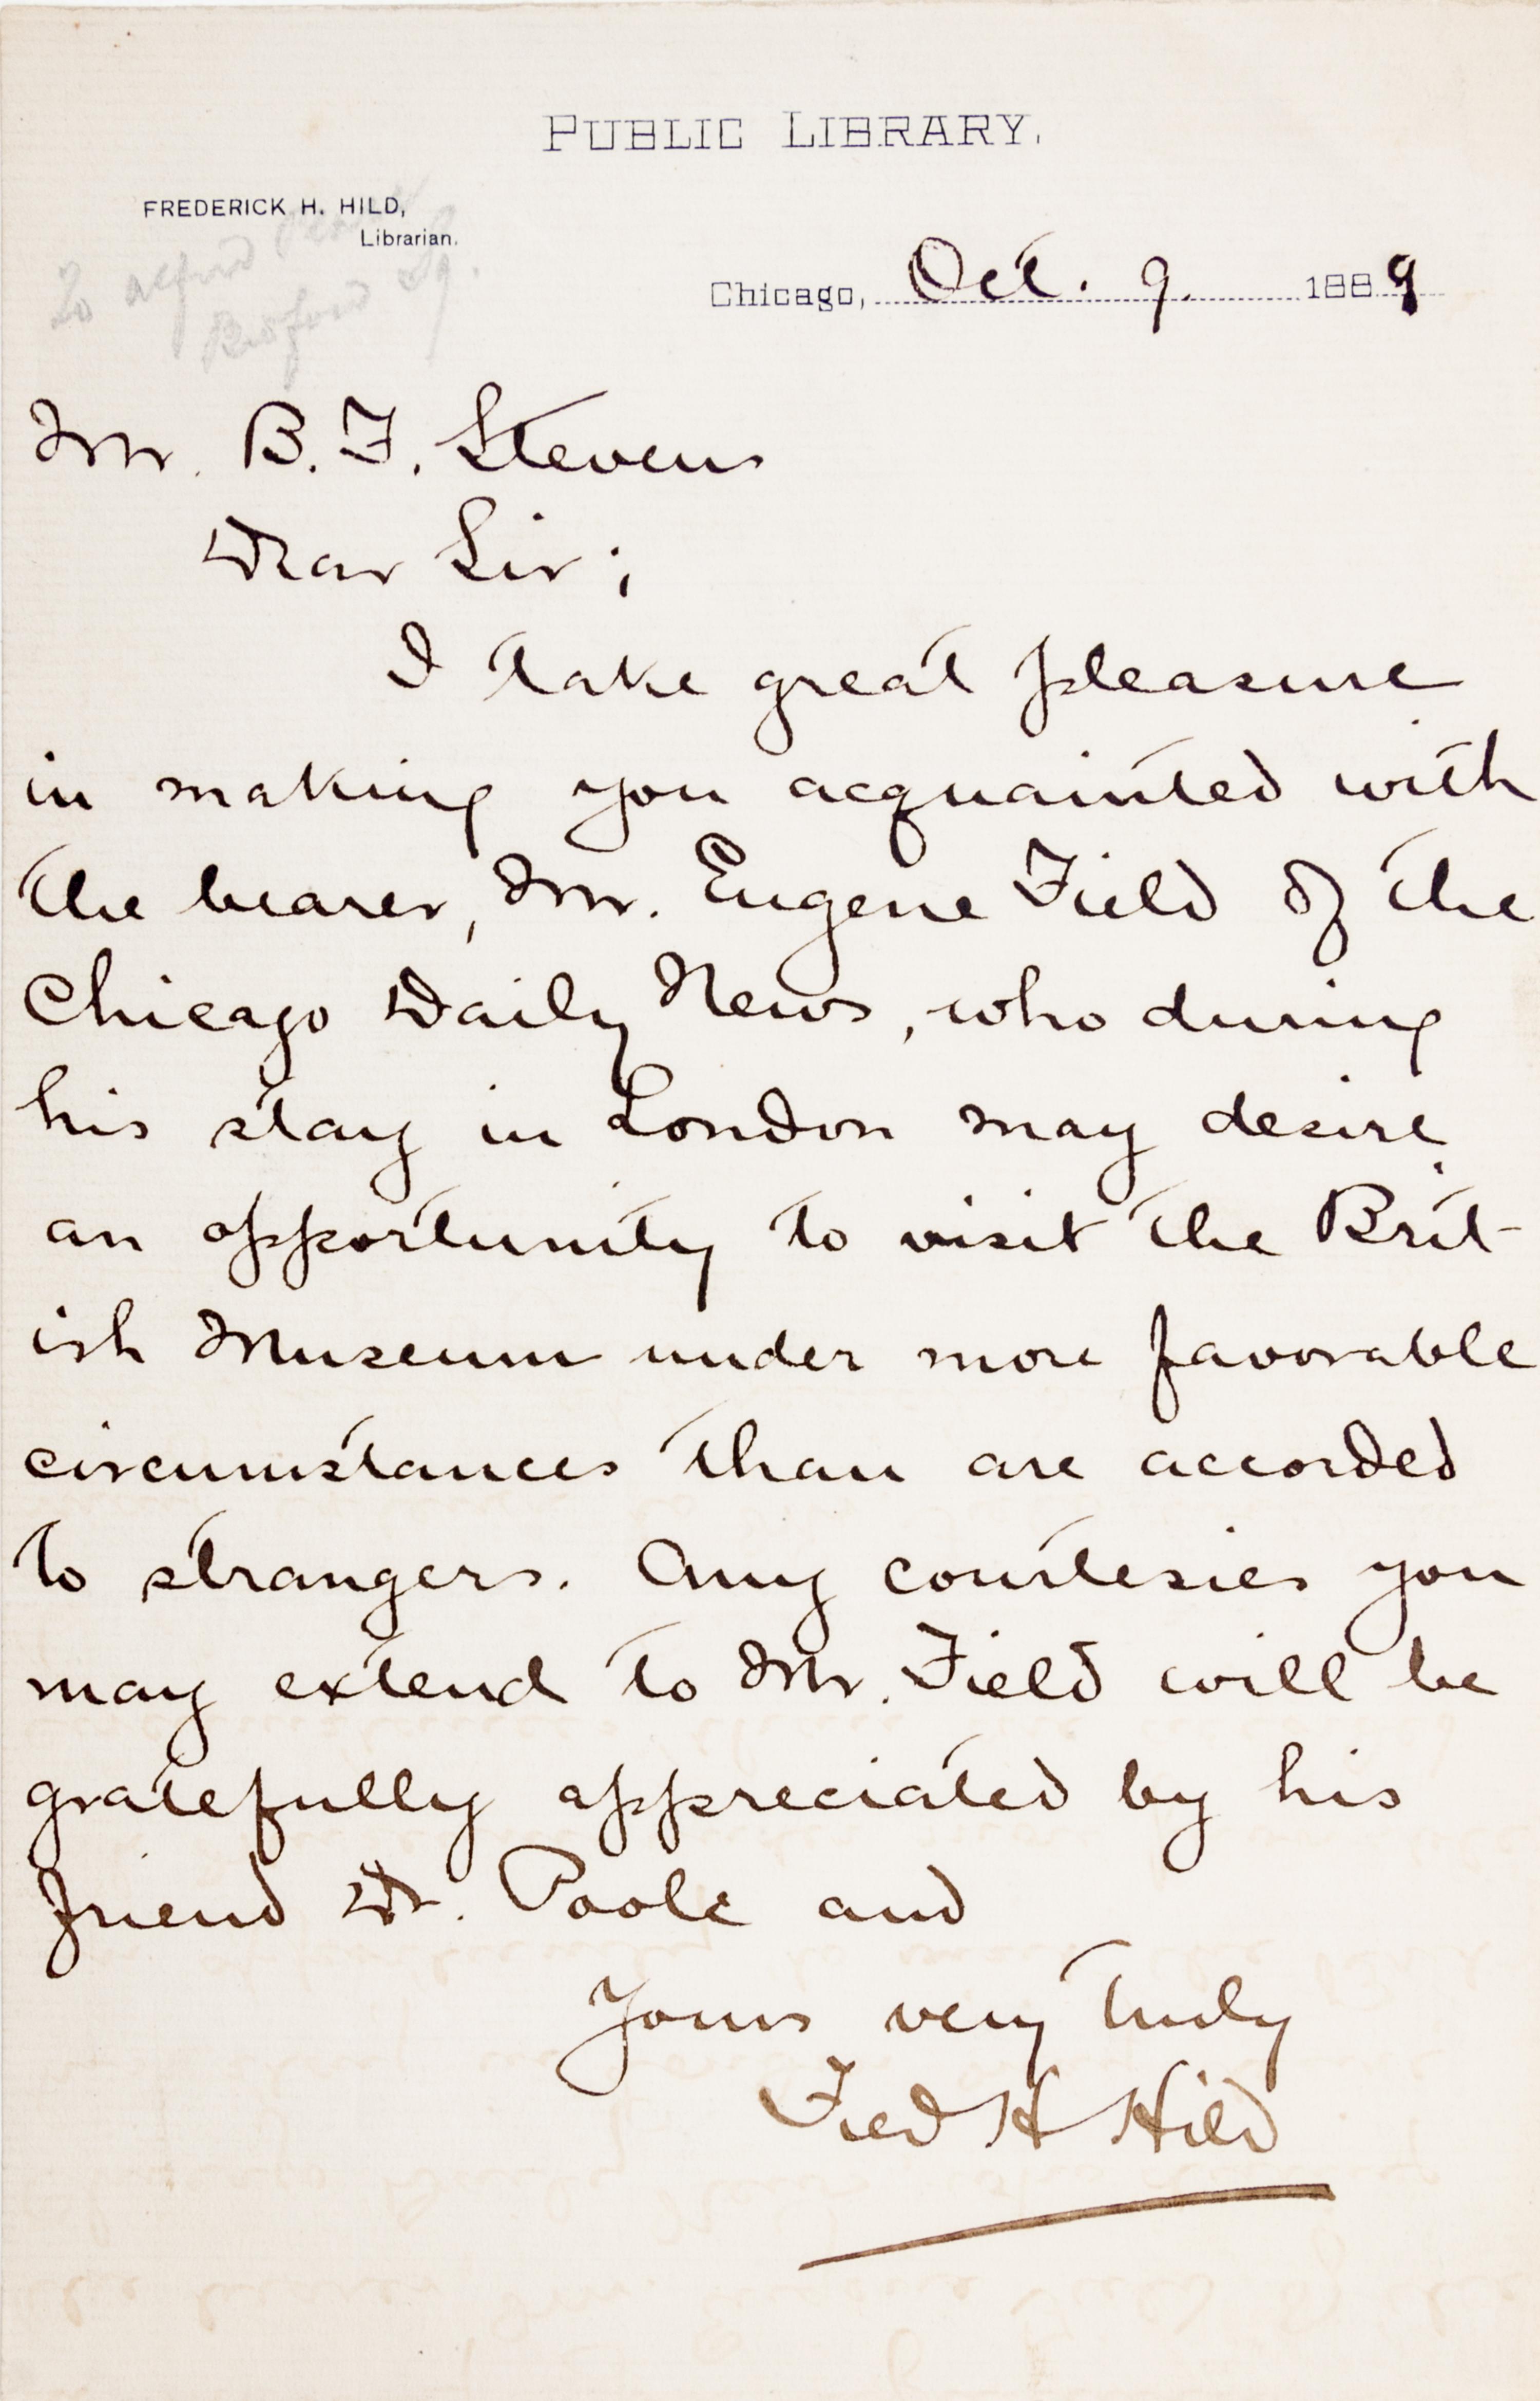 PUBLIC LIBRARY.
FREDERICK H. HILD,
Librarian.
To Alfred
Bedford Sq.
Chicago, Oct. 9. 1889
Mr. B. F. Stevens
Dear Sir;
I take great pleasure
in making you acquainted with
the bearer, Mr. Eugene Field of the
Chicago Daily News, who during
his stay in London may desire
an opportunity to visit the Brit-
ish Museum under more favorable
circumstances than are accorded
to strangers. Any courtesies you
may extend to Mr. Field will be
gratefully appreciated by his
friend Dr. Poole and
Yours very truly
Fred H Hild